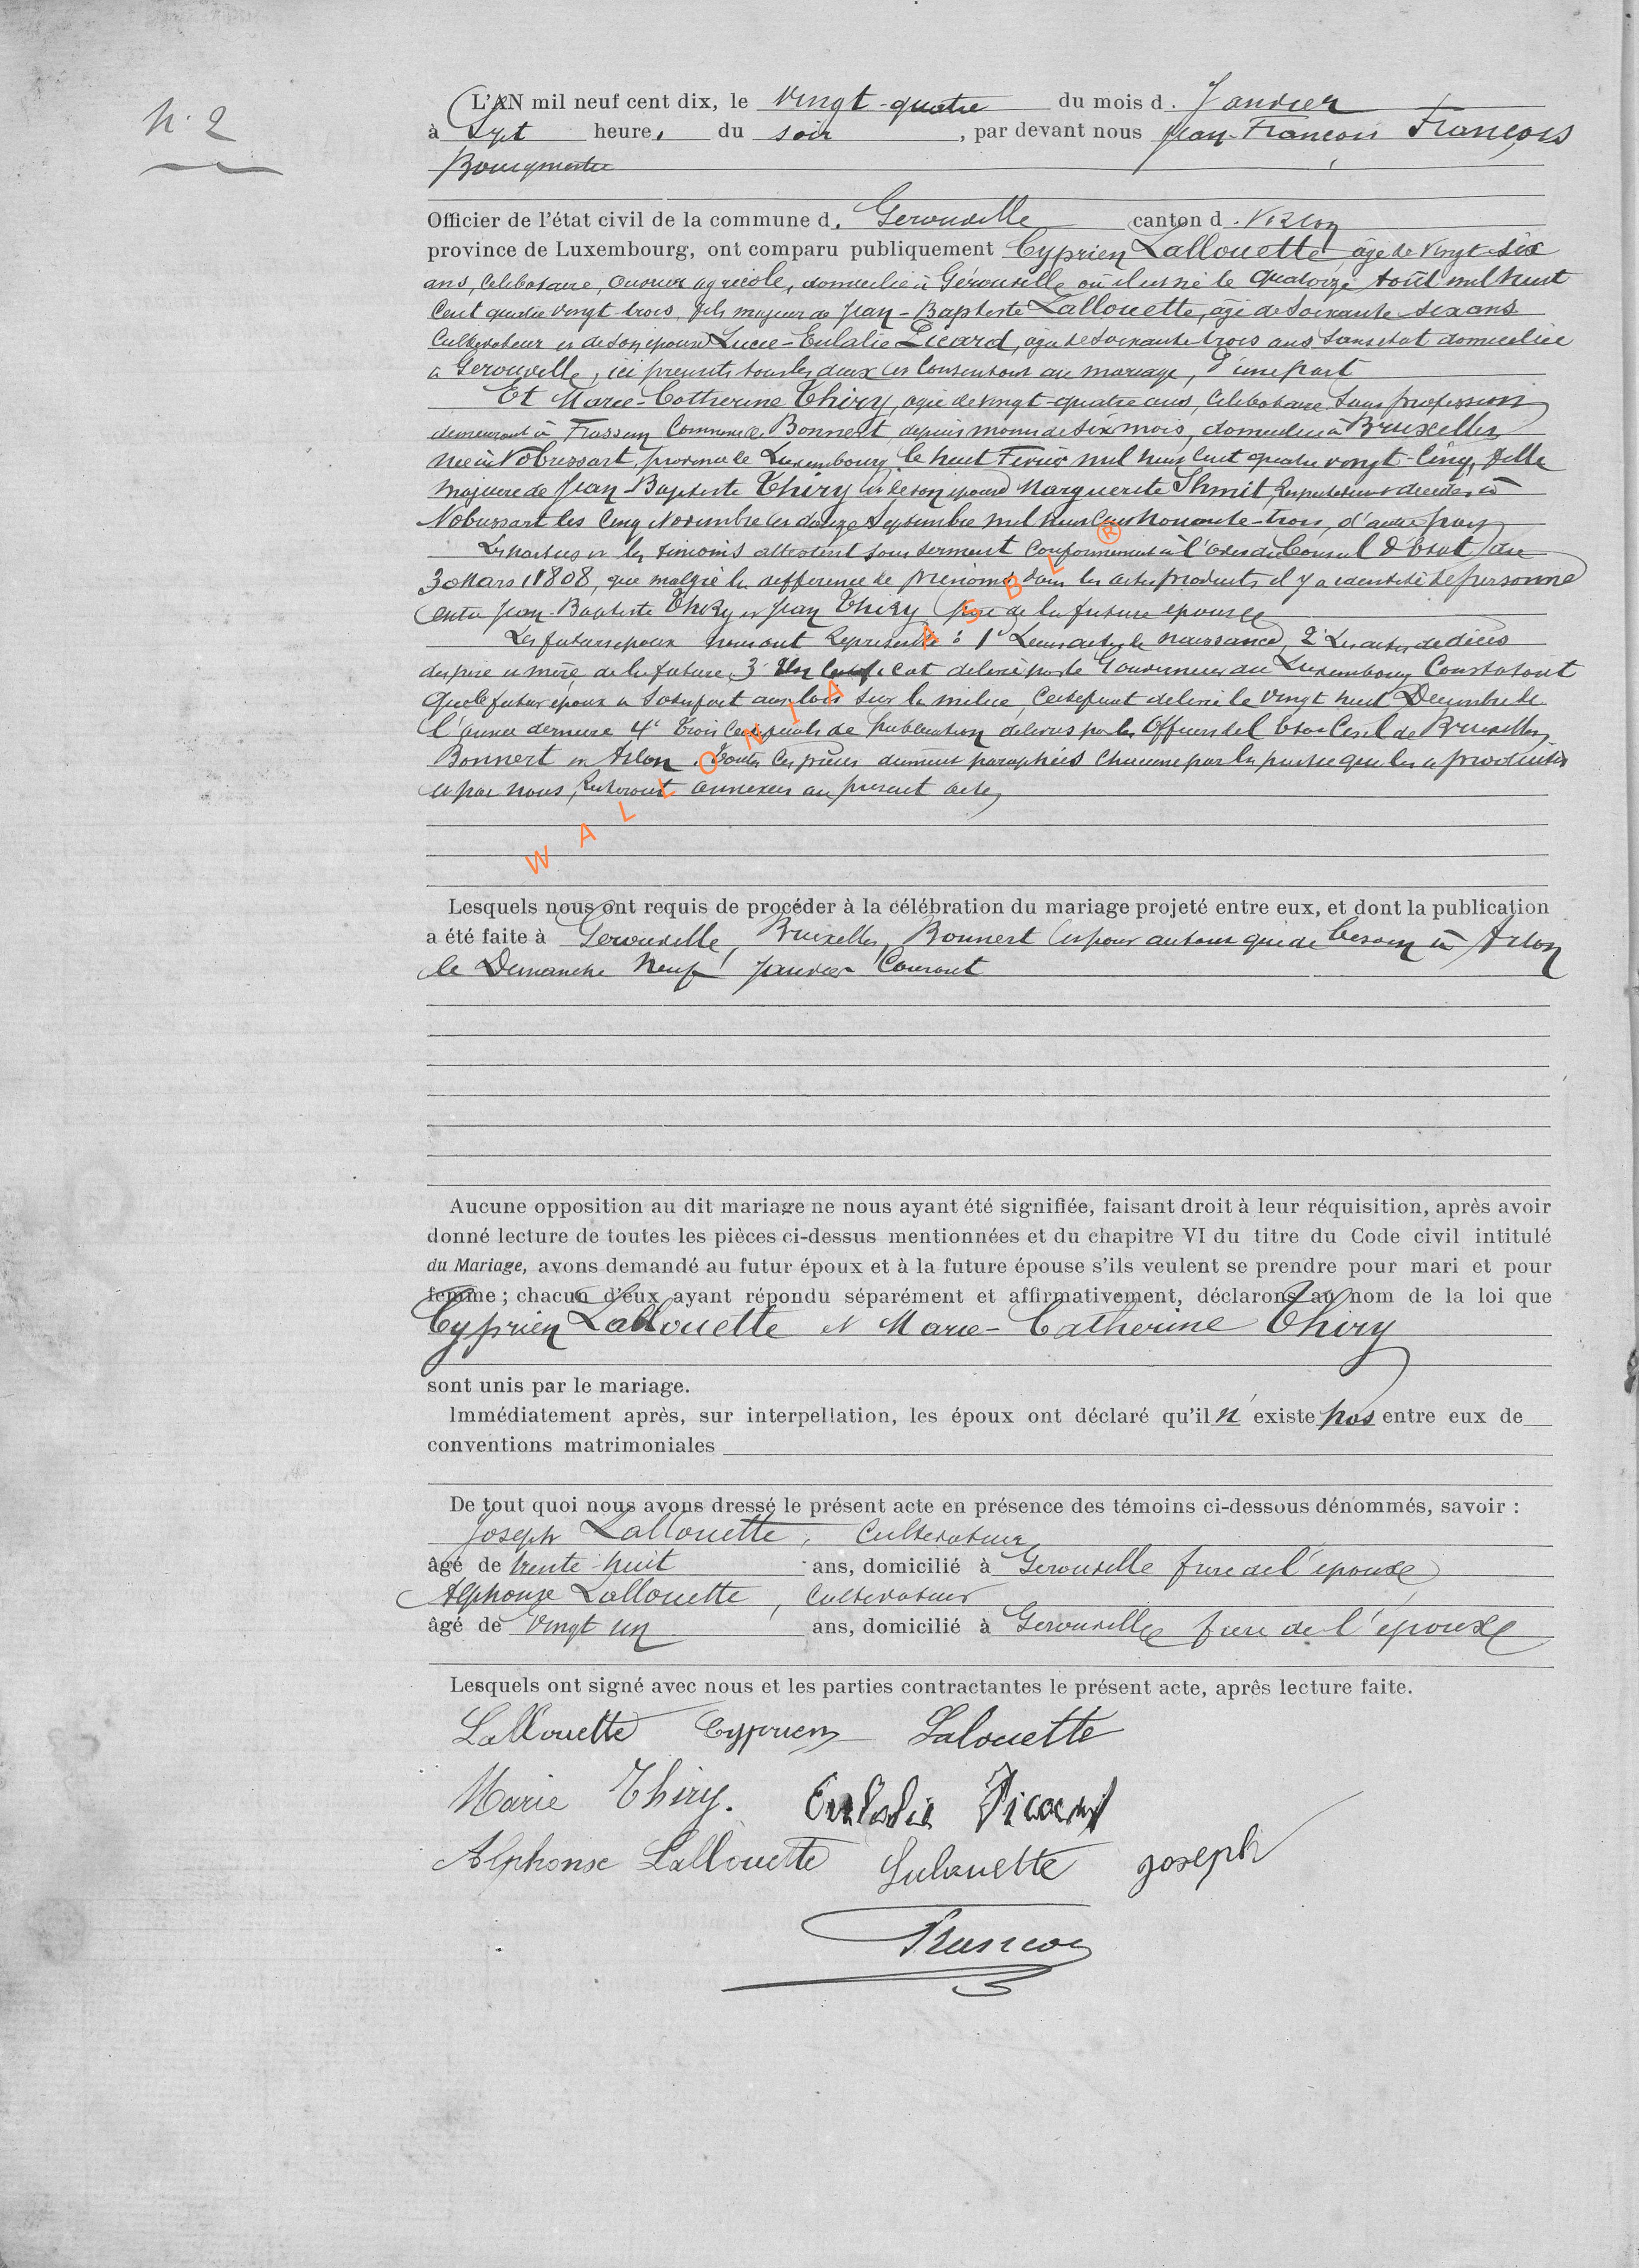 N° 2
L'AN mil neuf cent dix, le vingt-quatre du mois d. Janvier
à Sept heure, du soir, par devant nous Jean-François François
Bourgmestre
Officier de l'état civil de la commune d. Gerouville canton d. Virton
province de Luxembourg, ont comparu publiquement Cyprien Lallouette âgé de vingt-six
ans, Célibataire, ouvrier agricole, domicilié à Gérouville où il est né le quatorze Août mil huit
Cent quatre vingt trois, fils majeur de Jean-Baptiste Lallouette, âgé de soixante six ans
Cultivateur et de son épouse Lucie-Eulalie Picard, âgée de soixante trois ans sans état domiciliée
à Gerouville, ici présents tous les deux et Consentant au mariage, d'une part
Et Marie-Catherine Thiry, agée de vingt-quatre ans, Célibataire sans profession
demeurant à Frassem Commune de Bonnert, depuis moins de six mois, domiciliée à Bruxelles
née à Nobressart, province de Luxembourg le huit Février mil huit cent quatre vingt-cinq, fille
majeure de Jean-Baptiste Thiry et de son épouse Marguerite Shmit, respectivement décédés à
Nobressart les cinq Novembre et douze septembre mil huit cent nonante-trois, d'autre part
Les parties et les témoins attestent sous serment Conformément à l'avis du Conseil d'Etat du
30 Mars 1808, que malgré la différence de prénoms dans les actes produits il y a identité de personne
entre Jean-Baptiste Thiry et Jean Thiry père de la future épouse
Les futurs époux nous ont représenté : 1° Leurs actes de naissance, 2° Les actes de décès
des père et mère de la future, 3° Un Certificat délivré par le Gouverneur du Luxembourg Constatant
que le futur époux a satisfait aux lois sur la milice, Certificat délivré le vingt huit Décembre de
l'année dernière 4° trois Certificats de publication délivrés par les Officiers de l'Etat Civil de Bruxelles
Bonnert et Arlon. Toutes les pièces dûment paraphées Chacune par la partie qui les a produites
et par nous, resteront annexées au présent acte
WALLONIA ASBL ®
Lesquels nous ont requis de procéder à la célébration du mariage projeté entre eux, et dont la publication
a été faite à Gerouville, Bruxelles, Bonnert et pour autant que de besoin à Arlon
le Dimanche Neuf Janvier Courant
Aucune opposition au dit mariage ne nous ayant été signifiée, faisant droit à leur réquisition, après avoir
donné lecture de toutes les pièces ci-dessus mentionnées et du chapitre VI du titre du Code civil intitulé
du Mariage, avons demandé au futur époux et à la future épouse s'ils veulent se prendre pour mari et pour
femme ; chacun d'eux ayant répondu séparément et affirmativement, déclarons au nom de la loi que
Cyprien Lallouette et Marie-Catherine Thiry
sont unis par le mariage.
Immédiatement après, sur interpellation, les époux ont déclaré qu'il n'existe pas entre eux de
conventions matrimoniales
De tout quoi nous avons dressé le présent acte en présence des témoins ci-dessous dénommés, savoir :
Joseph Lallouette, Cultivateur
âgé de trente huit ans, domicilié à Gerouville frère de l'époux
Alphonse Lallouette, Cultivateur
âgé de vingt un ans, domicilié à Gerouville frère de l'époux
Lesquels ont signé avec nous et les parties contractantes le présent acte, après lecture faite.
Lallouette Cyprien Lalouette
Marie Thiry. Eulalie Picard
Alphonse Lallouette Lalouette Joseph
François